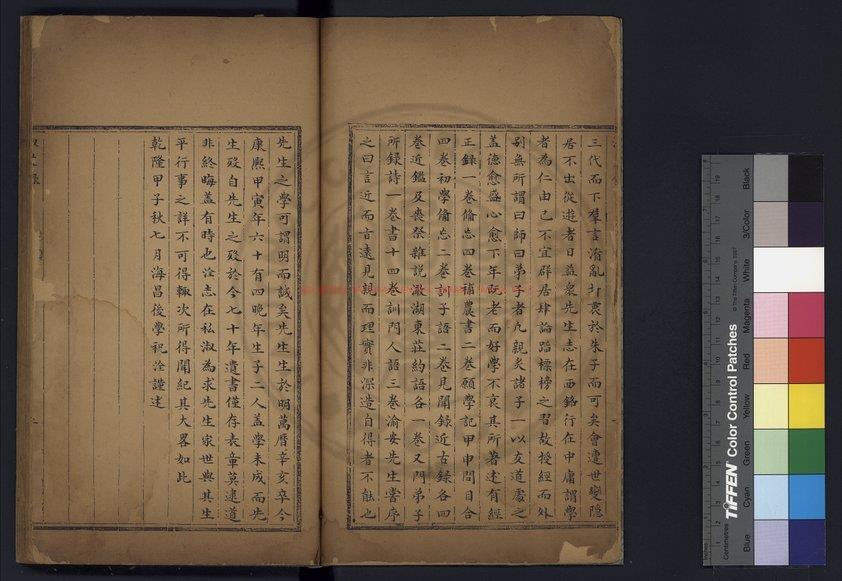 三代而下羣言淆亂折衷於朱子而可矣會遭世變隱
居不出從遊者日益衆先生志在西銘行在中庸謂學
者為仁由己不宜群居肆論蹈標榜之習教授經而外
別無所謂曰師曰弟子者凡親炙諸子一以友道處之
蓋德愈盛心愈下年旣老而好學不衰其所著述有經
正錄一卷備忘四卷補農書二卷願學記甲申問目合
四卷初學備忘二卷訓子語二卷見聞錄近古錄各四
卷近鑑及喪祭雜說澉湖東莊約語各一卷又門弟子
所錄詩一卷書十四卷訓門人語三卷渝安先生嘗序
之曰言近而言遠見親而理實非深造自得者不能也
先生之學可謂明而誠矣先生生於明萬曆辛亥卒今
康熙甲寅年六十有四晚年生子二人蓋學未成而先
生歿自先生之歿於今七十年遺書僅存表章莫逮道
非終晦蓋有時也洤志在私淑為求先生家世與其生
平行事之詳不可得輒次所得聞紀其大畧如此
乾隆甲子秋七月海昌後學祝洤謹述
TIFFEN Color Control Patches
© The Tiffen Company, 2007
Inches
Centimetres
Blue
Cyan
Green
Yellow
Red
Magenta
White
3/Color
Black